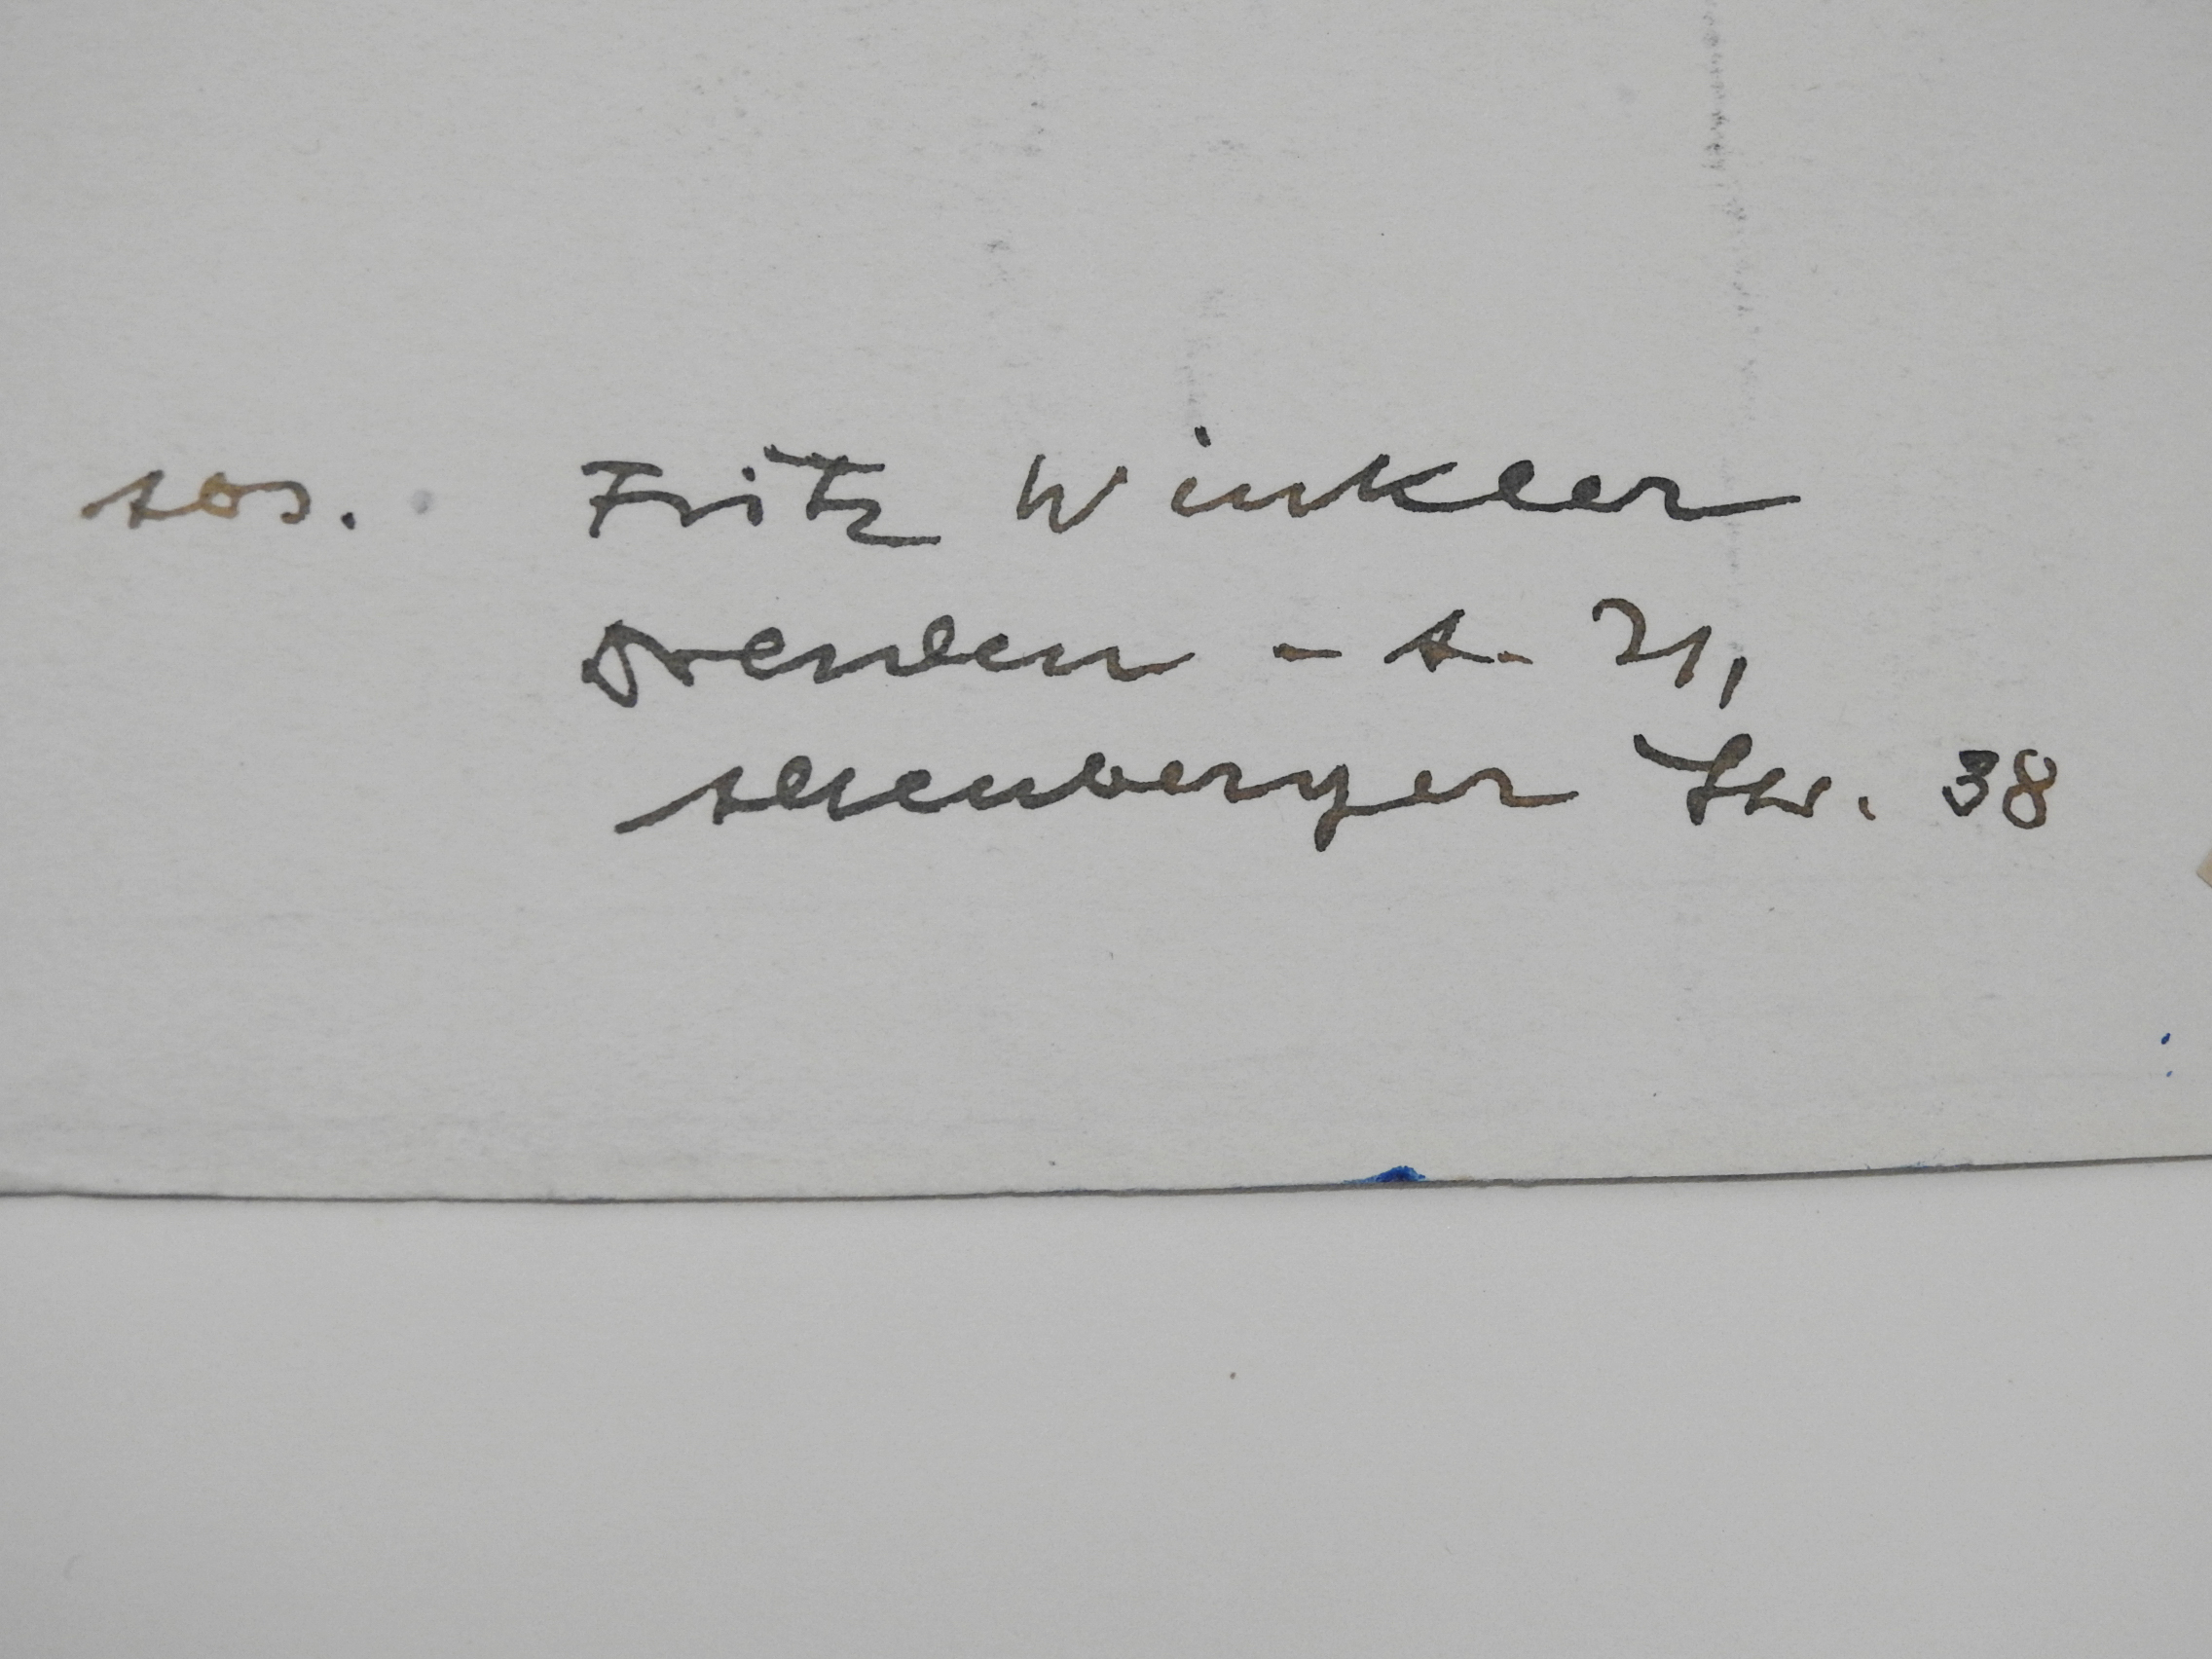 Abs. Fritz Winkler
Dresden - A. 21,
Altenberger Str. 38